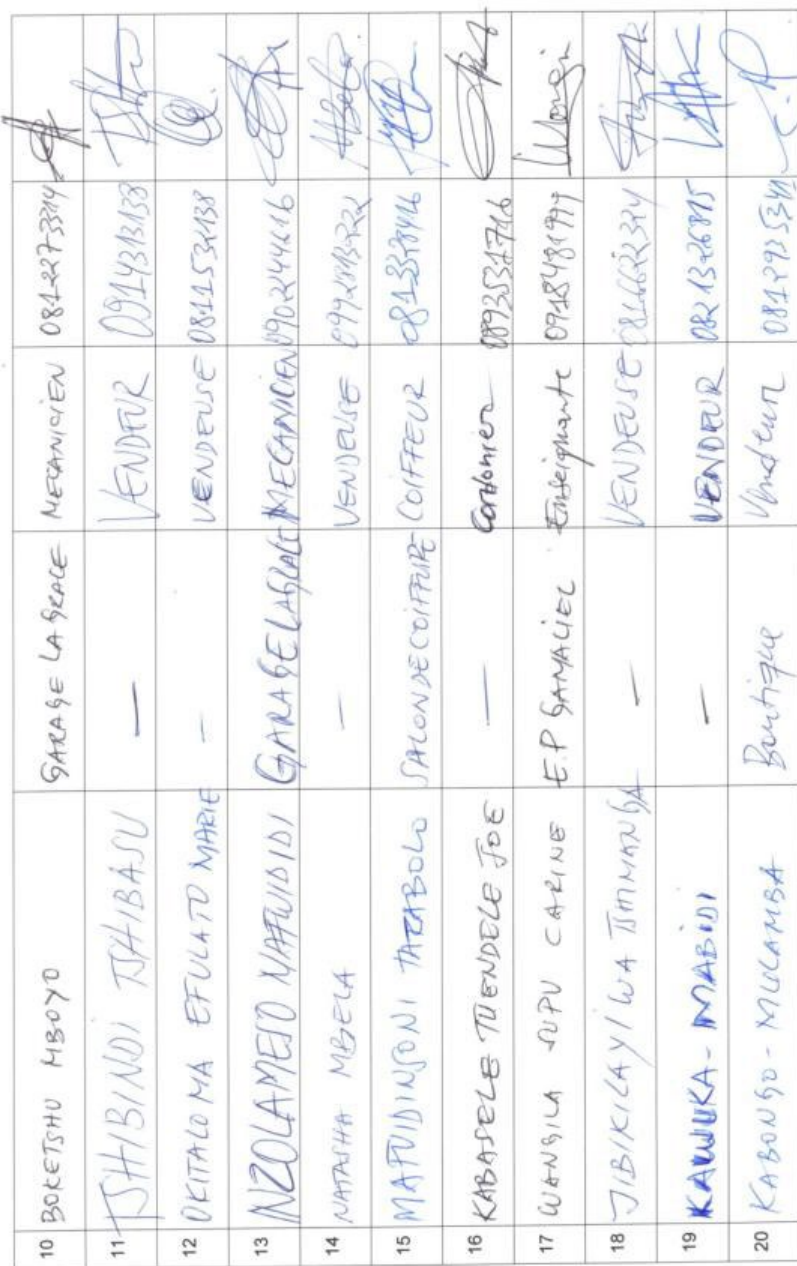 10 BOKETSHU MBOYO GARAGE LA GRACE MECANICIEN 0812273314
11 TSHIBINDI TSHIBASU — VENDEUR 0914313138
12 OKITALOMA EFULATO MARIE — VENDEUSE 0811532138
13 NZOLAMESO MAFUIDIDI GARAGE LAGRACE MECANICIEN 0902444616
14 NATASHA MBELA — VENDEUSE
15 MAFUIDINSONI SALON DE COIFFURE COIFFEUR
16 KABASELE TUENDELE JOE — Cordonier 0893531716
17 WANGILA SUPU CARINE E.P GAMALIEL Enseignante 0918481977
18 JIBIKILAYI WA TSHIMANGA — VENDEUSE
19 KAWUKA - MABIDI — VENDEUR 0821326815
20 KABONGO - MULAMBA Boutique Vendeur